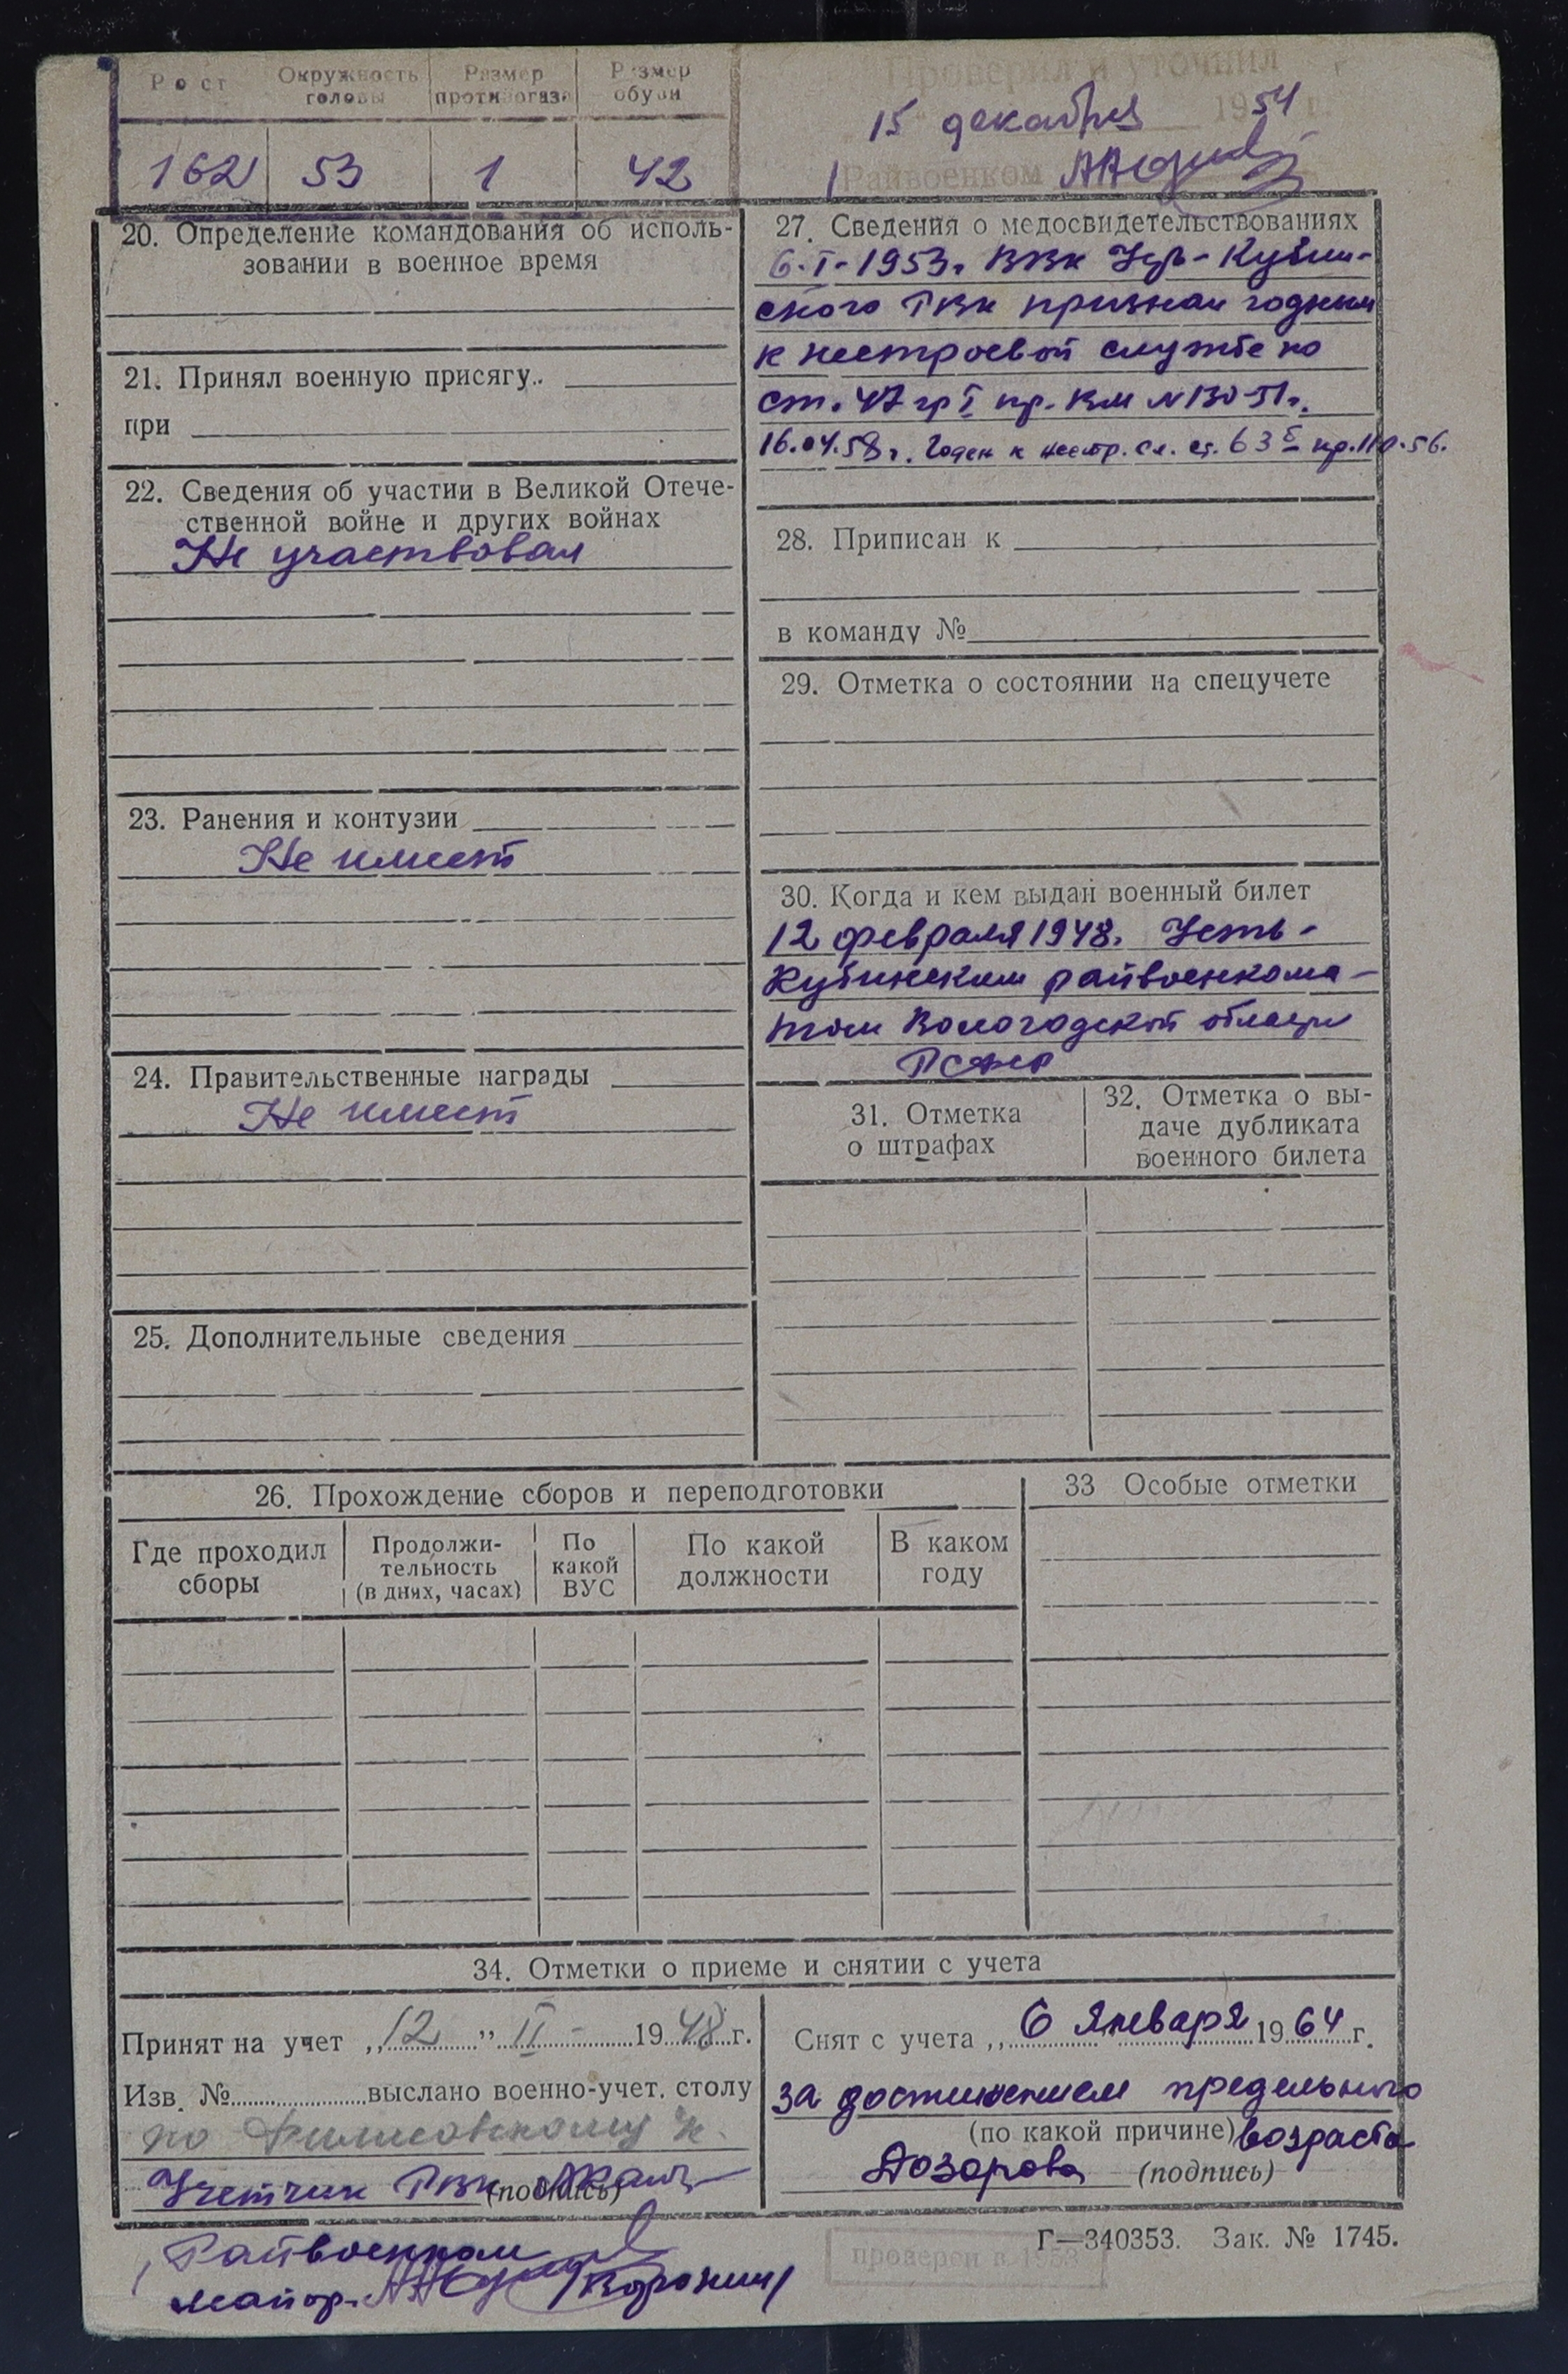 Рост Окружность головы Размер противогаза Размер обуви
162 53 1 42
Проверил и уточнил
15 декабря 1954 г.
Райвоенком
20. Определение командования об исполь-
зовании в военное время
21. Принял военную присягу
при
22. Сведения об участии в Великой Отече-
ственной войне и других войнах
Не участвовал
23. Ранения и контузии
Не имеет
24. Правительственные награды
Не имеет
25. Дополнительные сведения
27. Сведения о медосвидетельствованиях
6.I.1953г. ВВК Усть-Кубин-
ского РВК признан годным
к нестроевой службе по
ст. 47 гр I пр. ВМ N 130-51г.
16.04.58г. Годен к нестр. сл. ст. 63б пр. 110-56.
28. Приписан к
в команду №
29. Отметка о состоянии на спецучете
30. Когда и кем выдан военный билет
12 февраля 1948г. Усть-
Кубинским райвоенкома-
том Вологодской области
РСФСР
31. Отметка
о штрафах
32. Отметка о вы-
даче дубликата
военного билета
26. Прохождение сборов и переподготовки
Где проходил сборы Продолжи-тельность (в днях, часах) По какой ВУС По какой должности В каком году
33 Особые отметки
34. Отметки о приеме и снятии с учета
Принят на учет „12" II - 1948 г.
Изв. № выслано военно-учет. столу
по
Учетчик РВК (подпись)
Райвоенком
майор Воронин
Снят с учета „6 января 1964 г.
за достижением предельного
(по какой причине) возраста
Дозорова (подпись)
Г—340353. Зак. № 1745.
проверен в 1953